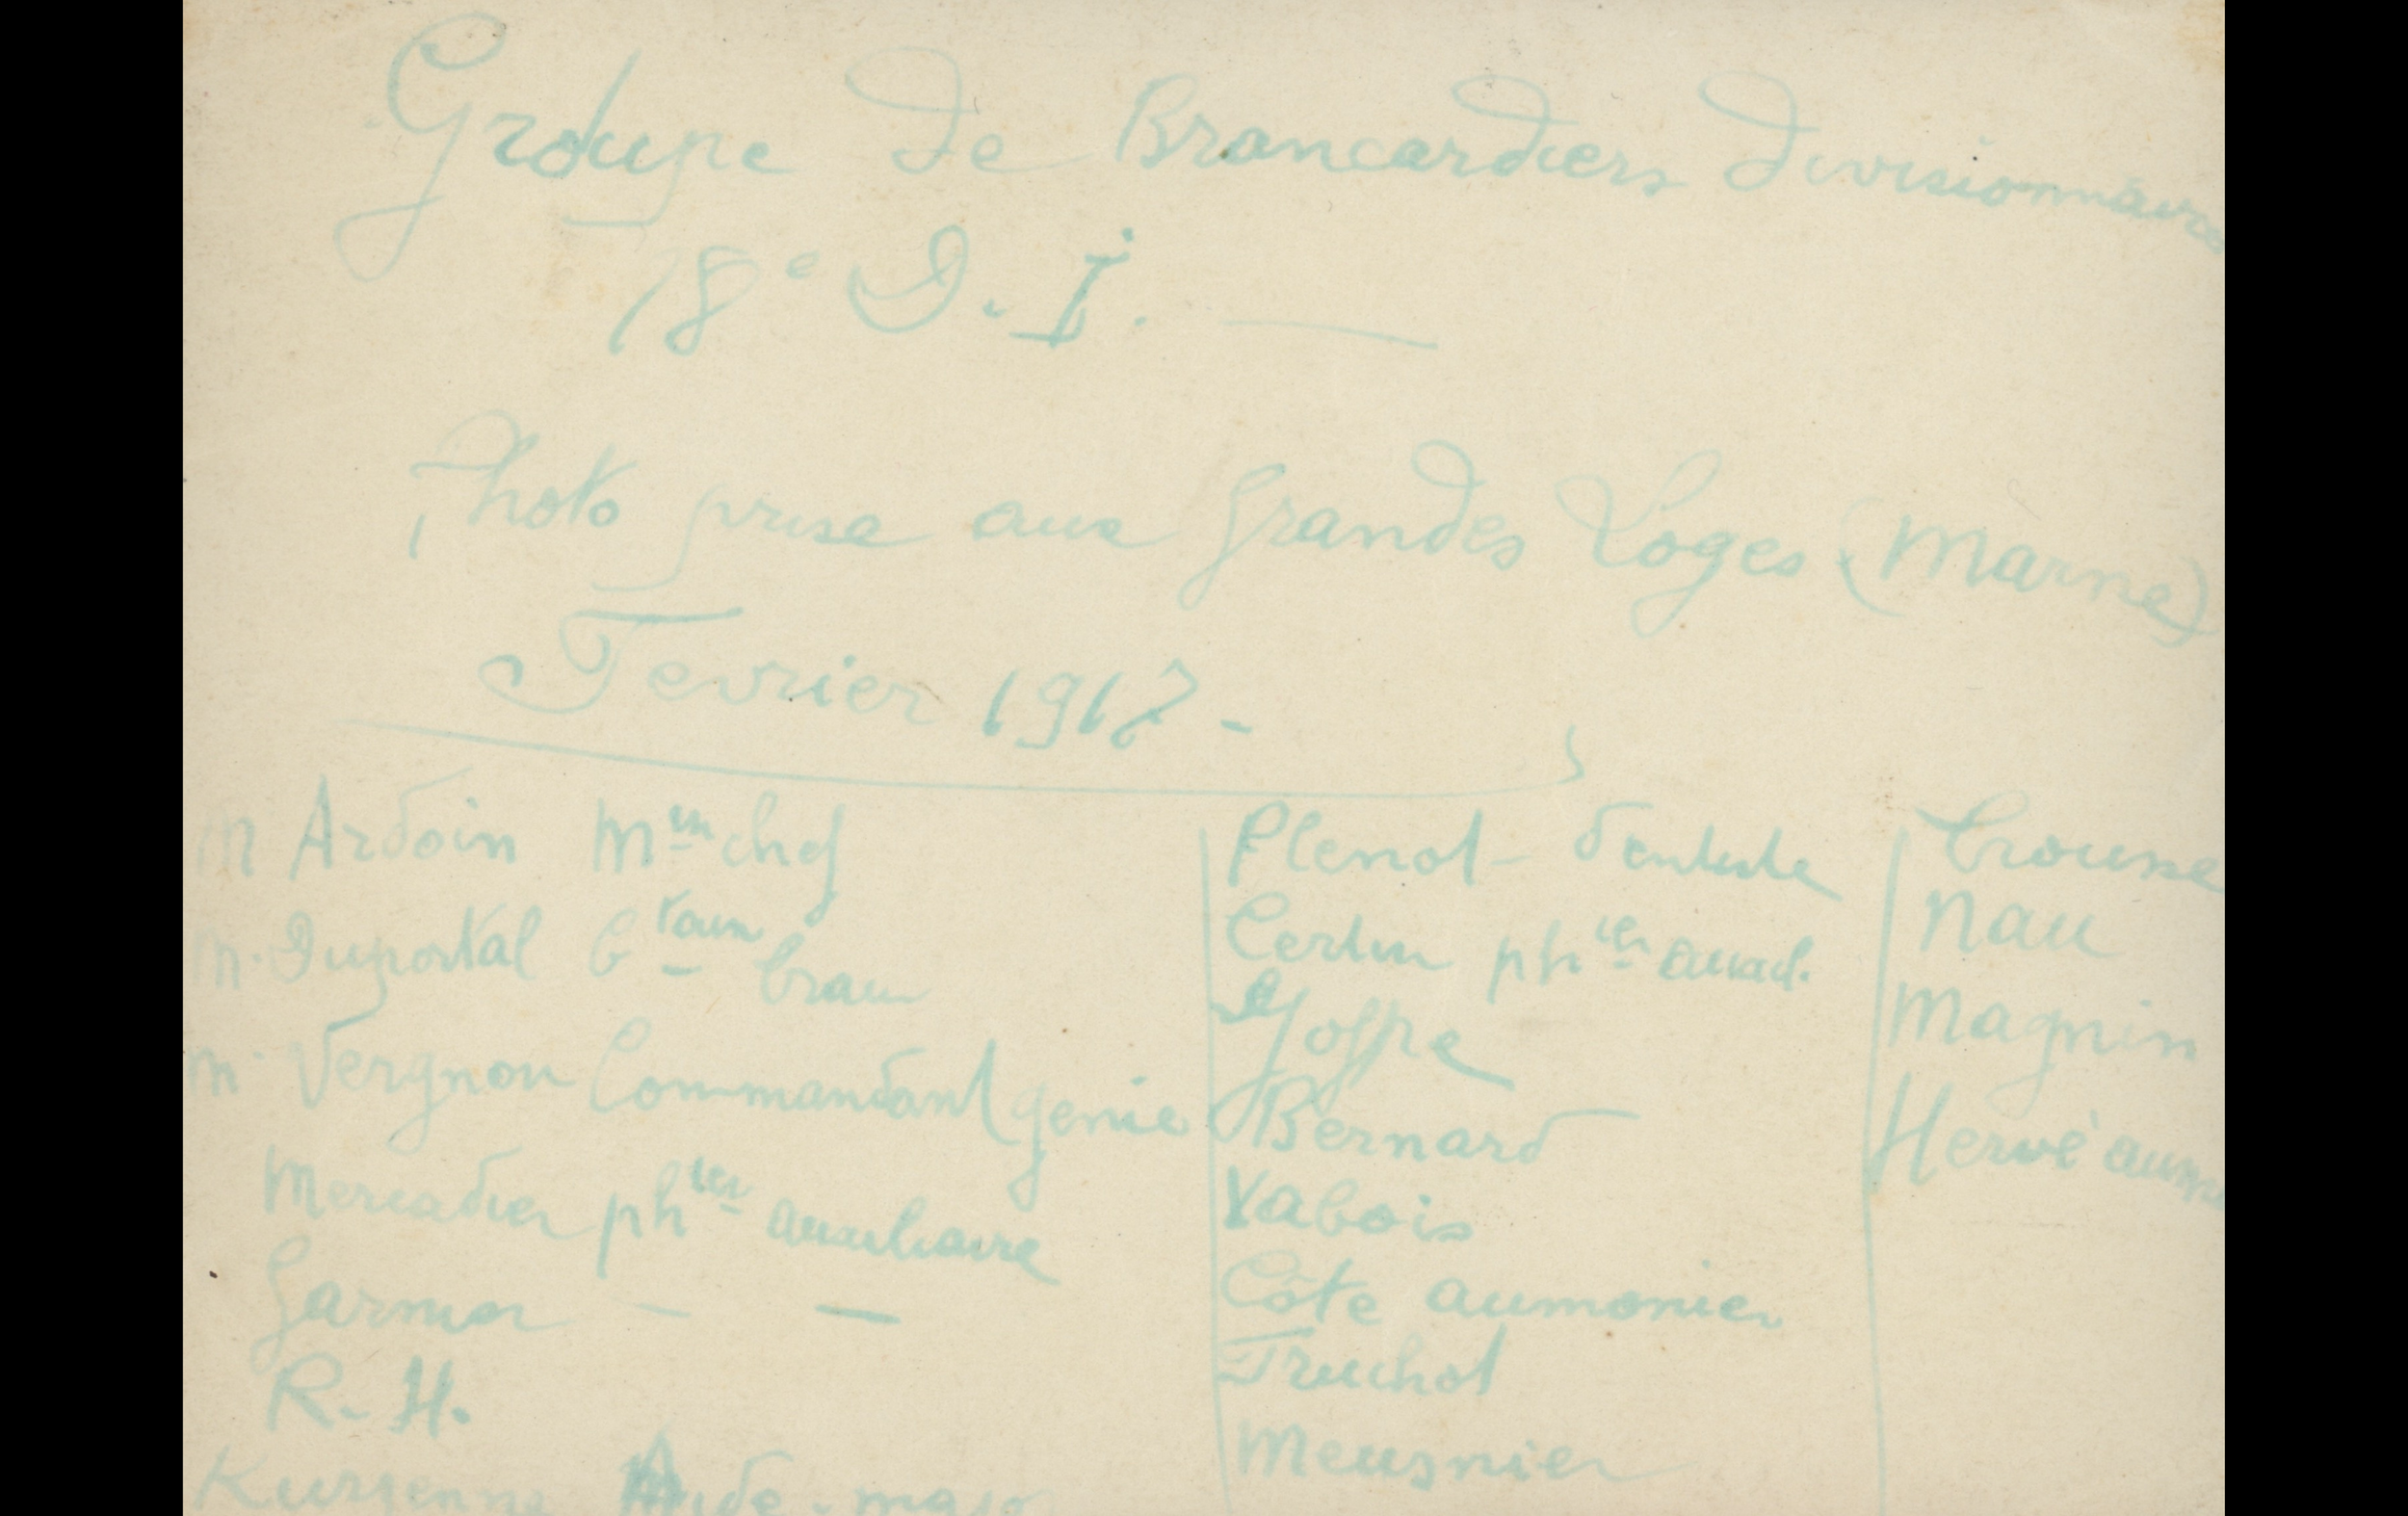 Groupe de Brancardiers Divisionnaire
18e D. I.
Photo prise aux Grandes Loges (Marne)
Fevrier 1917 -
M Ardoin Min chef
M. Duportal Ctaine train
M. Vergnon Commandant genie
Mercadier phien auxiliaire
Garnier — —
R. H.
Aide-major
Plenot - dentiste
Certin phien auxil.
Goffre
Bernard
Vabois
Côte aumonier
Truchot
Meusnier
Nau
Magnin
Hervé